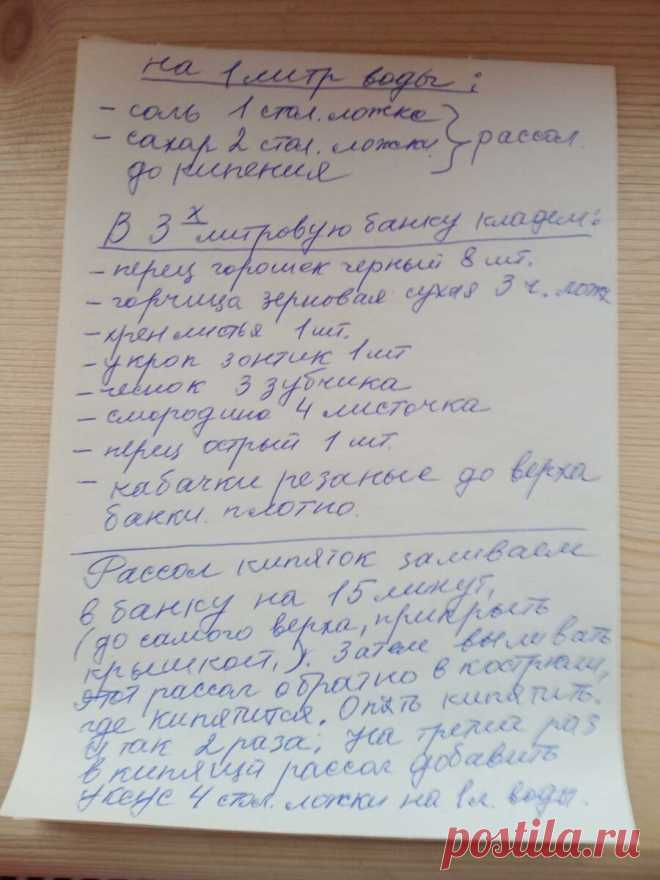 на 1 литр воды:
- соль 1 стол. ложка
- сахар 2 стол. ложки } рассол.
до кипения
В 3х литровую банку кладем:
- перец горошек черный 8 шт.
- горчица зерновая сухая 3 ч. лож
- хрен листья 1 шт.
- укроп зонтик 1 шт
- чеснок 3 зубчика
- смородина 4 листочка
- перец острый 1 шт.
- кабачки резаные до верха
банки плотно.
Рассол кипяток заливаем
в банку на 15 минут,
(до самого верха, прикрыть
крышкой,). Затем выливать
этот рассол обратно в кастрюлю,
где кипятится. Опять кипятить.
И так 2 раза; На третий раз
в кипящий рассол добавить
уксус 4 стол. ложки на 1 л. воды.
postila.ru